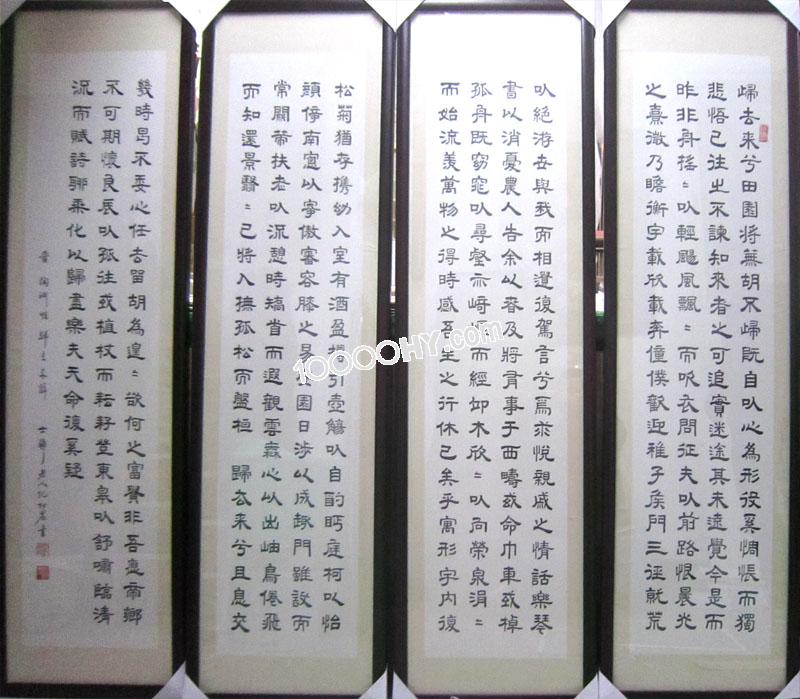 歸去來兮田園將蕪胡不歸既自以心為形役奚惆悵而獨
悲悟已往之不諫知來者之可追實迷途其未遠覺今是而
昨非舟搖〻以輕颺風飄〻而吹衣問征夫以前路恨晨光
之熹微乃瞻衡宇載欣載奔僮僕歡迎稚子侯門三徑就荒
松菊猶存攜幼入室有酒盈樽引壺觴以自酌眄庭柯以怡
顏倚南窗以寄傲審容膝之易園日涉以成趣門雖設而
常關策扶老以流憩時矯首而遐觀雲無心以出岫鳥倦飛
而知還景翳〻已將入撫孤松而盤桓 歸去來兮且息交
以絕游世與我而相遺復駕言兮焉求悅親戚之情話樂琴
書以消憂農人告余以春及將有事于西疇或命巾車或棹
孤舟既窈窕以尋壑亦崎嶇而經邱木欣〻以向榮泉涓〻
而始流羨萬物之得時感吾生之行休已矣乎寓形宇內復
幾時曷不委心任去留胡為遑〻欲何之富貴非吾愿帝鄉
不可期懷良辰以孤往或植杖而耘耔登東皋以舒嘯臨清
流而賦詩聊乘化以歸盡樂夫天命復奚疑
晉 陶淵明 歸去來辭
10000HY.com